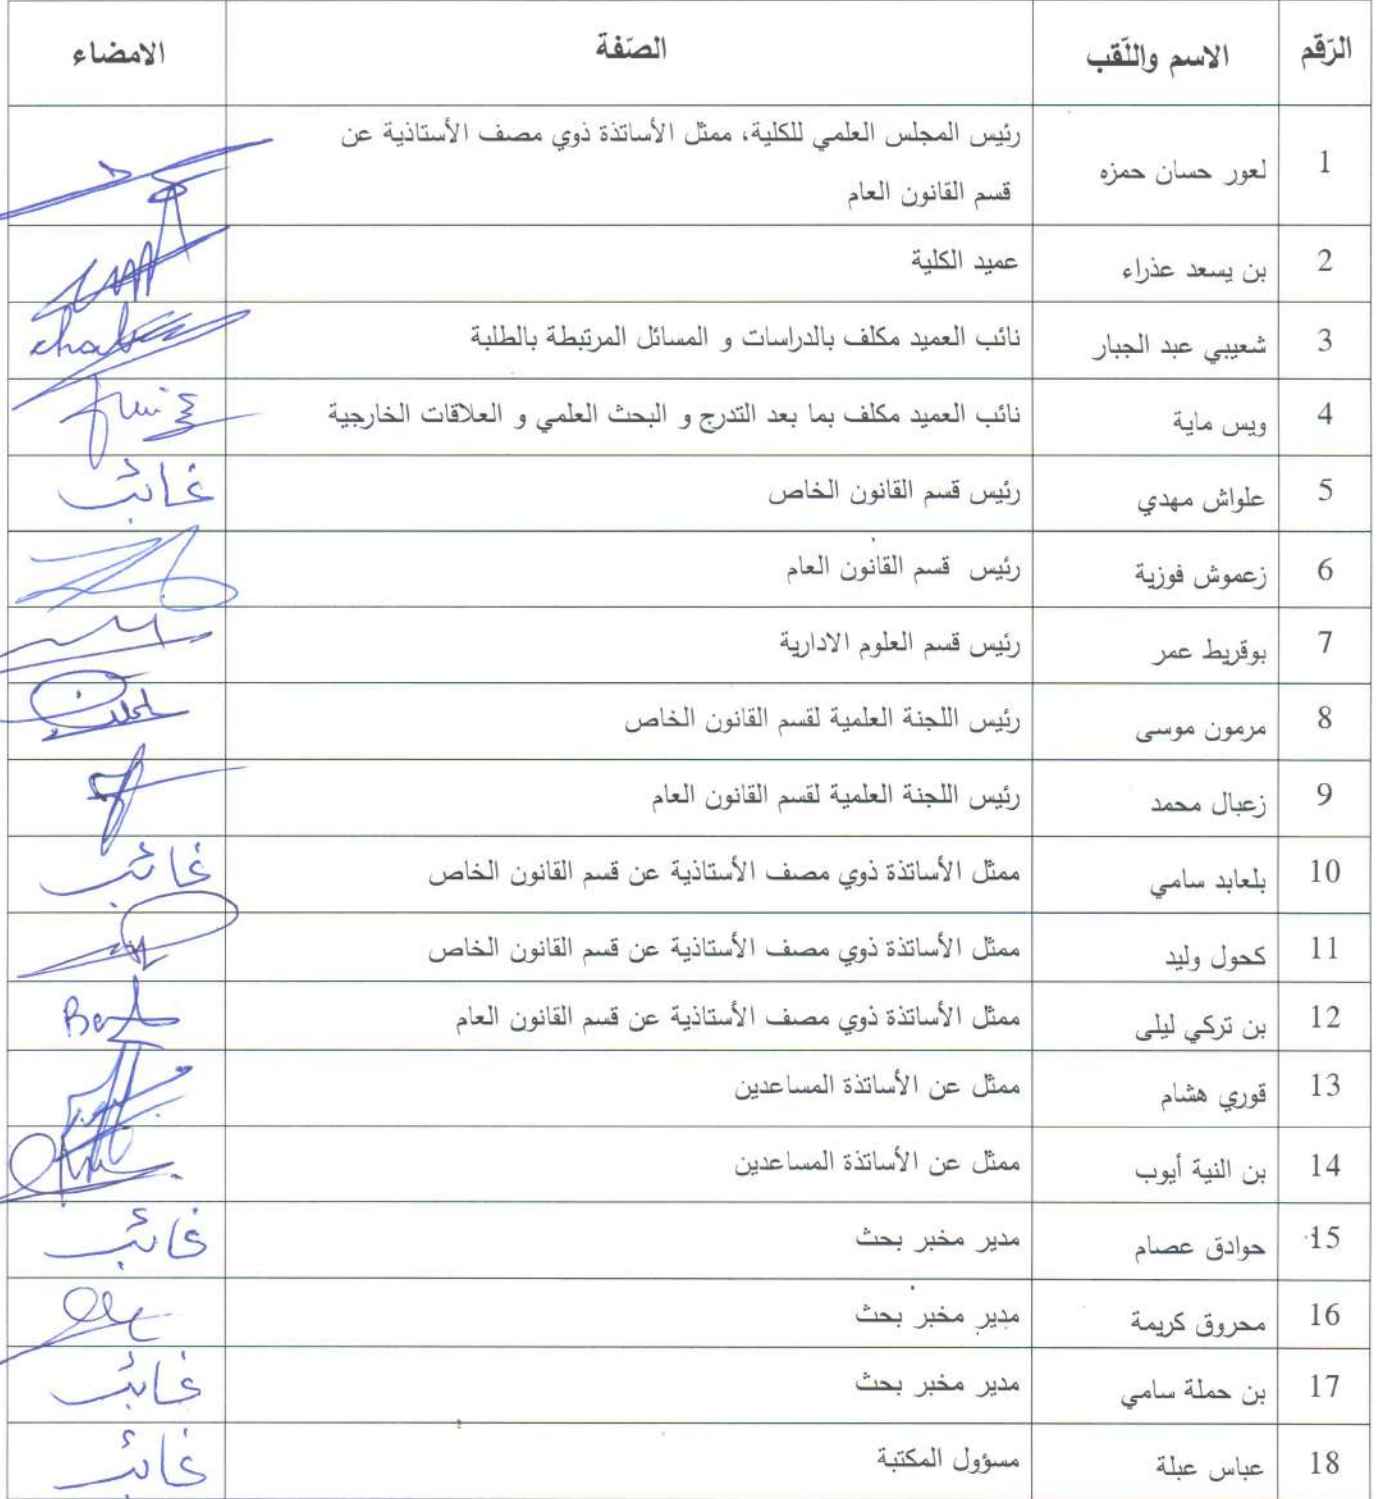 الرّقم الاسم واللّقب الصّفة الامضاء
1 لعور حسان حمزه رئيس المجلس العلمي للكلية، ممثل الأساتذة ذوي مصف الأستاذية عن
قسم القانون العام
2 بن يسعد عذراء عميد الكلية
3 شعيبي عبد الجبار نائب العميد مكلف بالدراسات و المسائل المرتبطة بالطلبة
4 ويس ماية نائب العميد مكلف بما بعد التدرج و البحث العلمي و العلاقات الخارجية
5 علواش مهدي رئيس قسم القانون الخاص غائب
6 زعموش فوزية رئيس قسم القانون العام
7 بوقريط عمر رئيس قسم العلوم الادارية
8 مرمون موسى رئيس اللجنة العلمية لقسم القانون الخاص
9 زعبال محمد رئيس اللجنة العلمية لقسم القانون العام
10 بلعابد سامي ممثل الأساتذة ذوي مصف الأستاذية عن قسم القانون الخاص غائب
11 كحول وليد ممثل الأساتذة ذوي مصف الأستاذية عن قسم القانون الخاص
12 بن تركي ليلى ممثل الأساتذة ذوي مصف الأستاذية عن قسم القانون العام
13 قوري هشام ممثل عن الأساتذة المساعدين
14 بن النية أيوب ممثل عن الأساتذة المساعدين
15 حوادق عصام مدير مخبر بحث غائب
16 محروق كريمة مدير مخبر بحث
17 بن حملة سامي مدير مخبر بحث غائب
18 عباس عبلة مسؤول المكتبة غائب